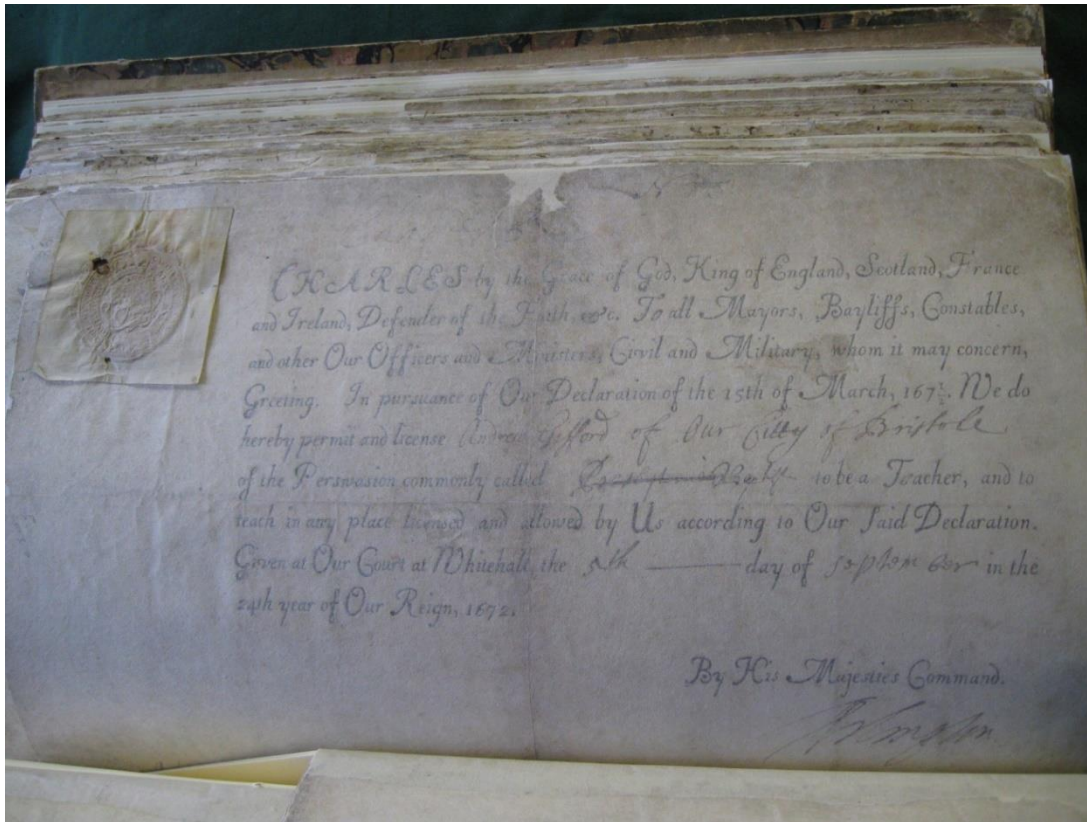 CHARLES by the Grace of God, King of England, Scotland, France
and Ireland, Defender of the Faith, &c. To all Mayors, Bayliffs, Constables,
and other Our Officers and Ministers, Civil and Military, whom it may concern,
Greeting. In pursuance of Our Declaration of the 15th of March, 167½. We do
hereby permit and license Andrew Gifford of Our Citty of Bristole
of the Perswasion commonly called to be a Teacher, and to
teach in any place licensed and allowed by Us according to Our said Declaration.
Given at Our Court at Whitehall the 5th day of September in the
24th year of Our Reign, 1672.
By His Majesties Command.
Arlington